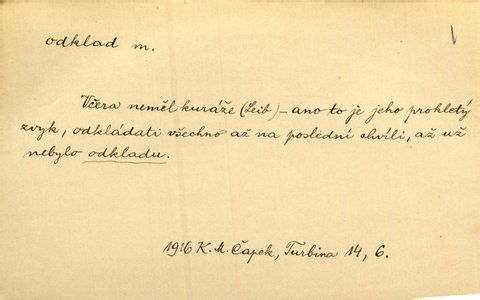 odklad m.
Včera neměl kuráže (Leib) – ano to je jeho prokletý
zvyk, odkládati všechno až na poslední chvíli, až už
nebylo odkladu.
1916 K. M. Čapek, Turbina 14, 6.